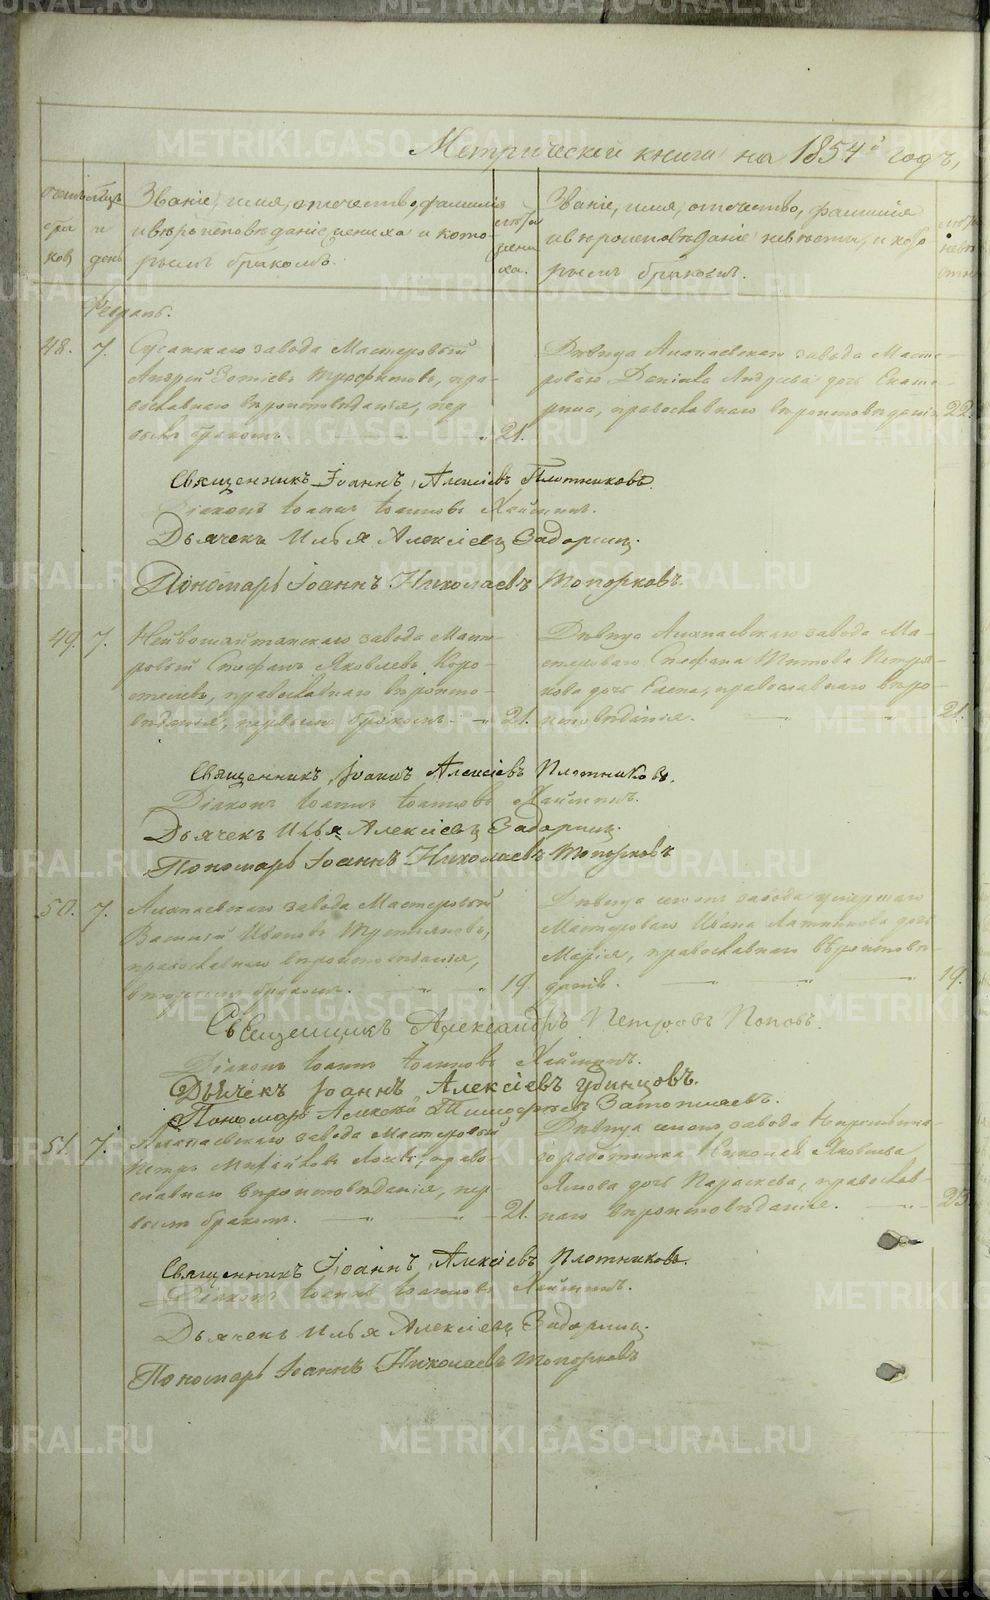 METRIKI.GASO-URAL.RU
Метрической книги на 1854й годъ,
Счетъ
бра
ковъ
Мѣсяцъ
и
день
Званіе, имя, отечество, фамилія
и вѣроисповѣданіе жениха и кото-
рымъ бракомъ.
лѣта
жени
ха.
Званіе, имя, отечество, фамилія
и вѣроисповѣданіе невѣсты, и кото-
рымъ бракомъ.
лѣта
невѣ
сты
Февраль.
48. 7. Сусанскаго завода Мастеровый
Андрей Зотіевъ Трофимовъ, пра-
вославнаго вѣроисповѣданія, пер
вымъ бракомъ. 21.
Дѣвица Алапаевскаго завода Масте-
роваго Даніила Андреева дочь Екате-
рина, православнаго вѣроисповѣданія 22.
Священникъ Іоаннъ Алексіевъ Плотниковъ.
Діаконъ Іоаннъ Іоанновъ
Дьячекъ Илья Алексіевъ Задоринъ.
Пономарь Іоаннъ Николаевъ Топорковъ
49. 7. Нейвошайтанскаго завода Масте-
ровый Стефанъ Яковлевъ Коро-
стелевъ, православнаго вѣроиспо-
вѣданія, первымъ бракомъ. 21.
Дѣвица Алапаевскаго завода Ма-
стероваго Стефана Титова Петря-
кова дочь Елена, православнаго вѣро-
исповѣданія. 21.
Священникъ Іоаннъ Алексіевъ Плотниковъ.
Діаконъ Іоаннъ Іоанновъ
Дьячекъ Илья Алексіевъ Задоринъ.
Пономарь Іоаннъ Николаевъ Топорковъ
50. 7. Алапаевскаго завода Мастеровый
Василій Ивановъ Третьяковъ,
православнаго вѣроисповѣданія,
вторымъ бракомъ. 19.
Дѣвица того завода умершаго
Мастероваго Ивана дочь
Марія, православнаго вѣроисповѣ-
данія. 19.
Священникъ Александръ Петровъ Поповъ.
Діаконъ Іоаннъ Іоанновъ
Дьячекъ Іоаннъ Алексіевъ Удинцовъ.
Пономарь Алексѣй Тимофеевъ Затопляевъ.
51. 7. Алапаевскаго завода Мастеровый
Петръ Михайловъ право-
славнаго вѣроисповѣданія, пер-
вымъ бракомъ. 21.
Дѣвица того завода
работника Николая Яковлева
дочь Параскева, православ-
наго вѣроисповѣданія. 23.
Священникъ Іоаннъ Алексіевъ Плотниковъ.
Діаконъ Іоаннъ Іоанновъ
Дьячекъ Илья Алексіевъ Задоринъ.
Пономарь Іоаннъ Николаевъ Топорковъ